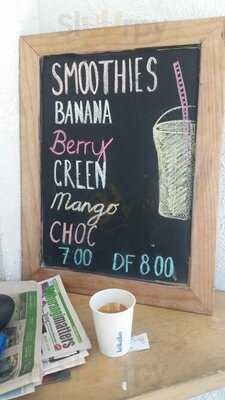 SMOOTHIES
BANANA
Berry
GREEN
Mango
CHOC
7 00 DF 8 00